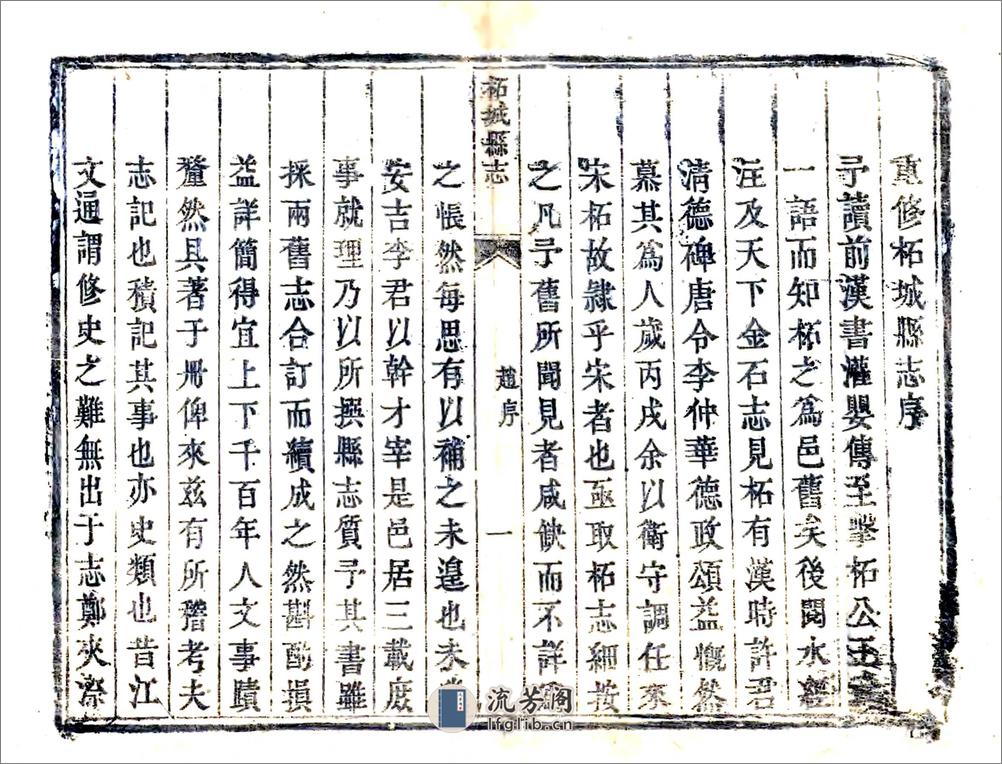 重修柘城縣志序
予讀前漢書灌嬰傳至擊柘公王
一語而知柘之為邑舊矣後閱水經
注及天下金石志見柘有漢時許君
清德碑唐令李仲華德政頌益慨然
慕其為人歲丙戌余以衛守調任來
宋柘故隸乎宋者也亟取柘志細按
之凡予舊所聞見者咸缺而不詳
柘城縣志
趙序
一
之悵然每思有以補之未遑也未
安吉李君以幹才宰是邑居三載庶
事就理乃以所撰縣志質予其書雖
採兩舊志合訂而續成之然斟酌損
益詳簡得宜上下千百年人文事蹟
釐然具著于冊俾來茲有所稽考夫
志記也積記其事也亦史類也昔江
文通謂修史之難無出于志鄭夾漈
流芳閣
lfglib.cn